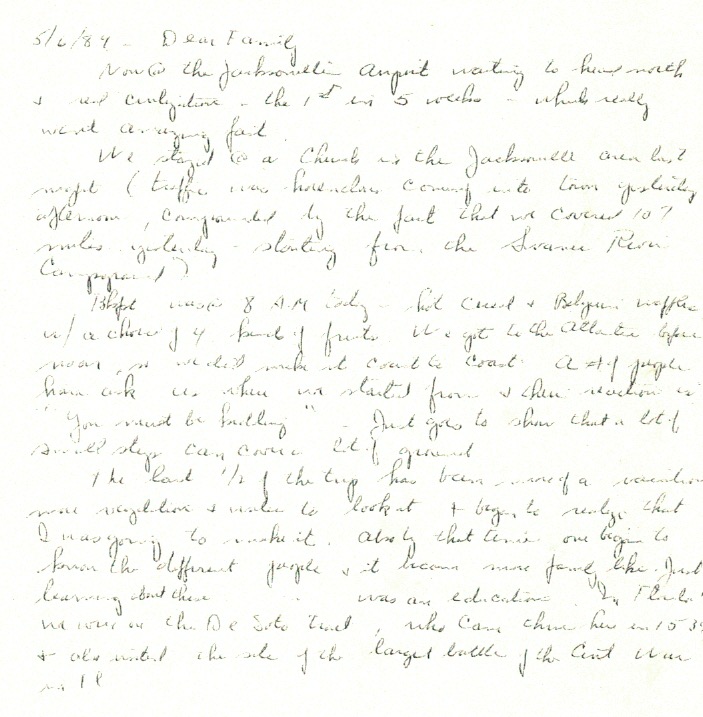 5/6/89 - Dear Family
Now @ the Jacksonville Airport waiting to head north
& real civilization - the 1st in 5 weeks - which really
went amazing fast.
We stayed @ a Church in the Jacksonville area last
night (traffic was horrendous coming into town yesterday
afternoon, compounded by the fact that we covered 107
miles yesterday - starting from the Swanee River
Campground)
Bkfst was @ 8 A.M today - hot cereal & Belgium waffles
w/ a choice of 4 kinds of fruits. We got to the Atlantic before
noon, so we did make it coast to coast. A # of people
have ask us where we started from & their reaction is
"You must be kidding" - Just goes to show that a lot of
small steps can cover a lot of ground
The last 1/2 of the trip has been more of a vacation
more vegetation & water to look at & began to realize that
I was going to make it. Also by that time one begins to
know the different people & it became more family like. Just
learning about these was an education. In Florida
we were on the De Soto trail, who came thru here in 1539
& also visited the site of the largest battle of the Civil War
in Fl